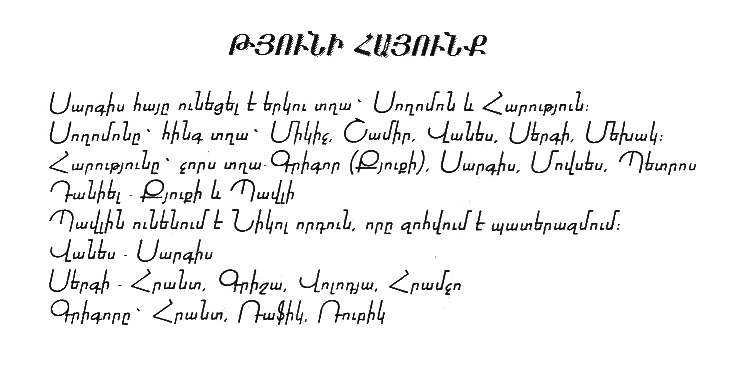 ԹՅՈՒՆԻ ՀԱՅՈՒՆՔ
Սարգիս հայը ունեցել է երկու տղա՝ Սողոմոն և Հարություն։
Սողոմոնը՝ հինգ տղա՝ Միկիչ, Շամիր, Վանես, Սերգի, Մեխակ։
Հարությունը՝ չորս տղա-Գրիգոր (Քյուքի), Սարգիս, Մովսես, Պետրոս
Դանիել - Քյուքի և Պավլի
Պավլին ունենում է Նիկոլ որդուն, որը զոհվում է պատերազմում։
Վանես - Սարգիս
Սերգի - Հրանտ, Գրիշա, Վոլոդյա, Հրամչո
Գրիգորը՝ Հրանտ, Ռաֆիկ, Ռուբիկ